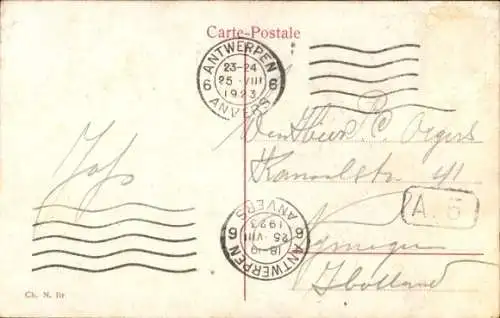 Carte-Postale
ANTWERPEN
6 23-24 6
25 VIII
1923
ANVERS
Den Heer P. C.
41
A. 5
Nijmegen
Holland
ANTWERPEN
6 18-19 6
25 VIII
1923
ANVERS
Ch. N. Br